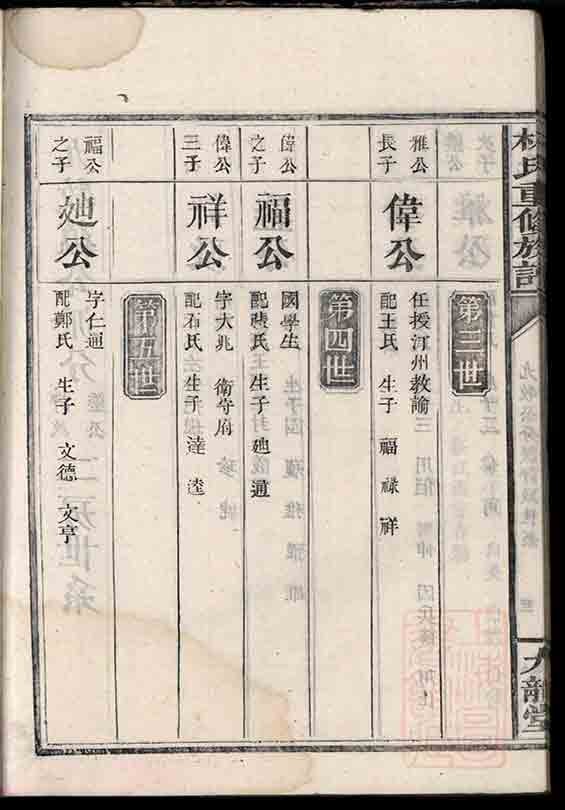 林氏重修族譜
九龍堂
第三世
雅公
長子
偉公
任授汀州教諭
配王氏 生子 福 祿 祥
第四世
偉公
之子
福公
國學生
生子 𪠽 通
偉公
三子
祥公
字大兆 衛守府
配石氏 生子 達 逵
第五世
福公
之子
公
字仁通
配鄭氏 生子 文德 文亨